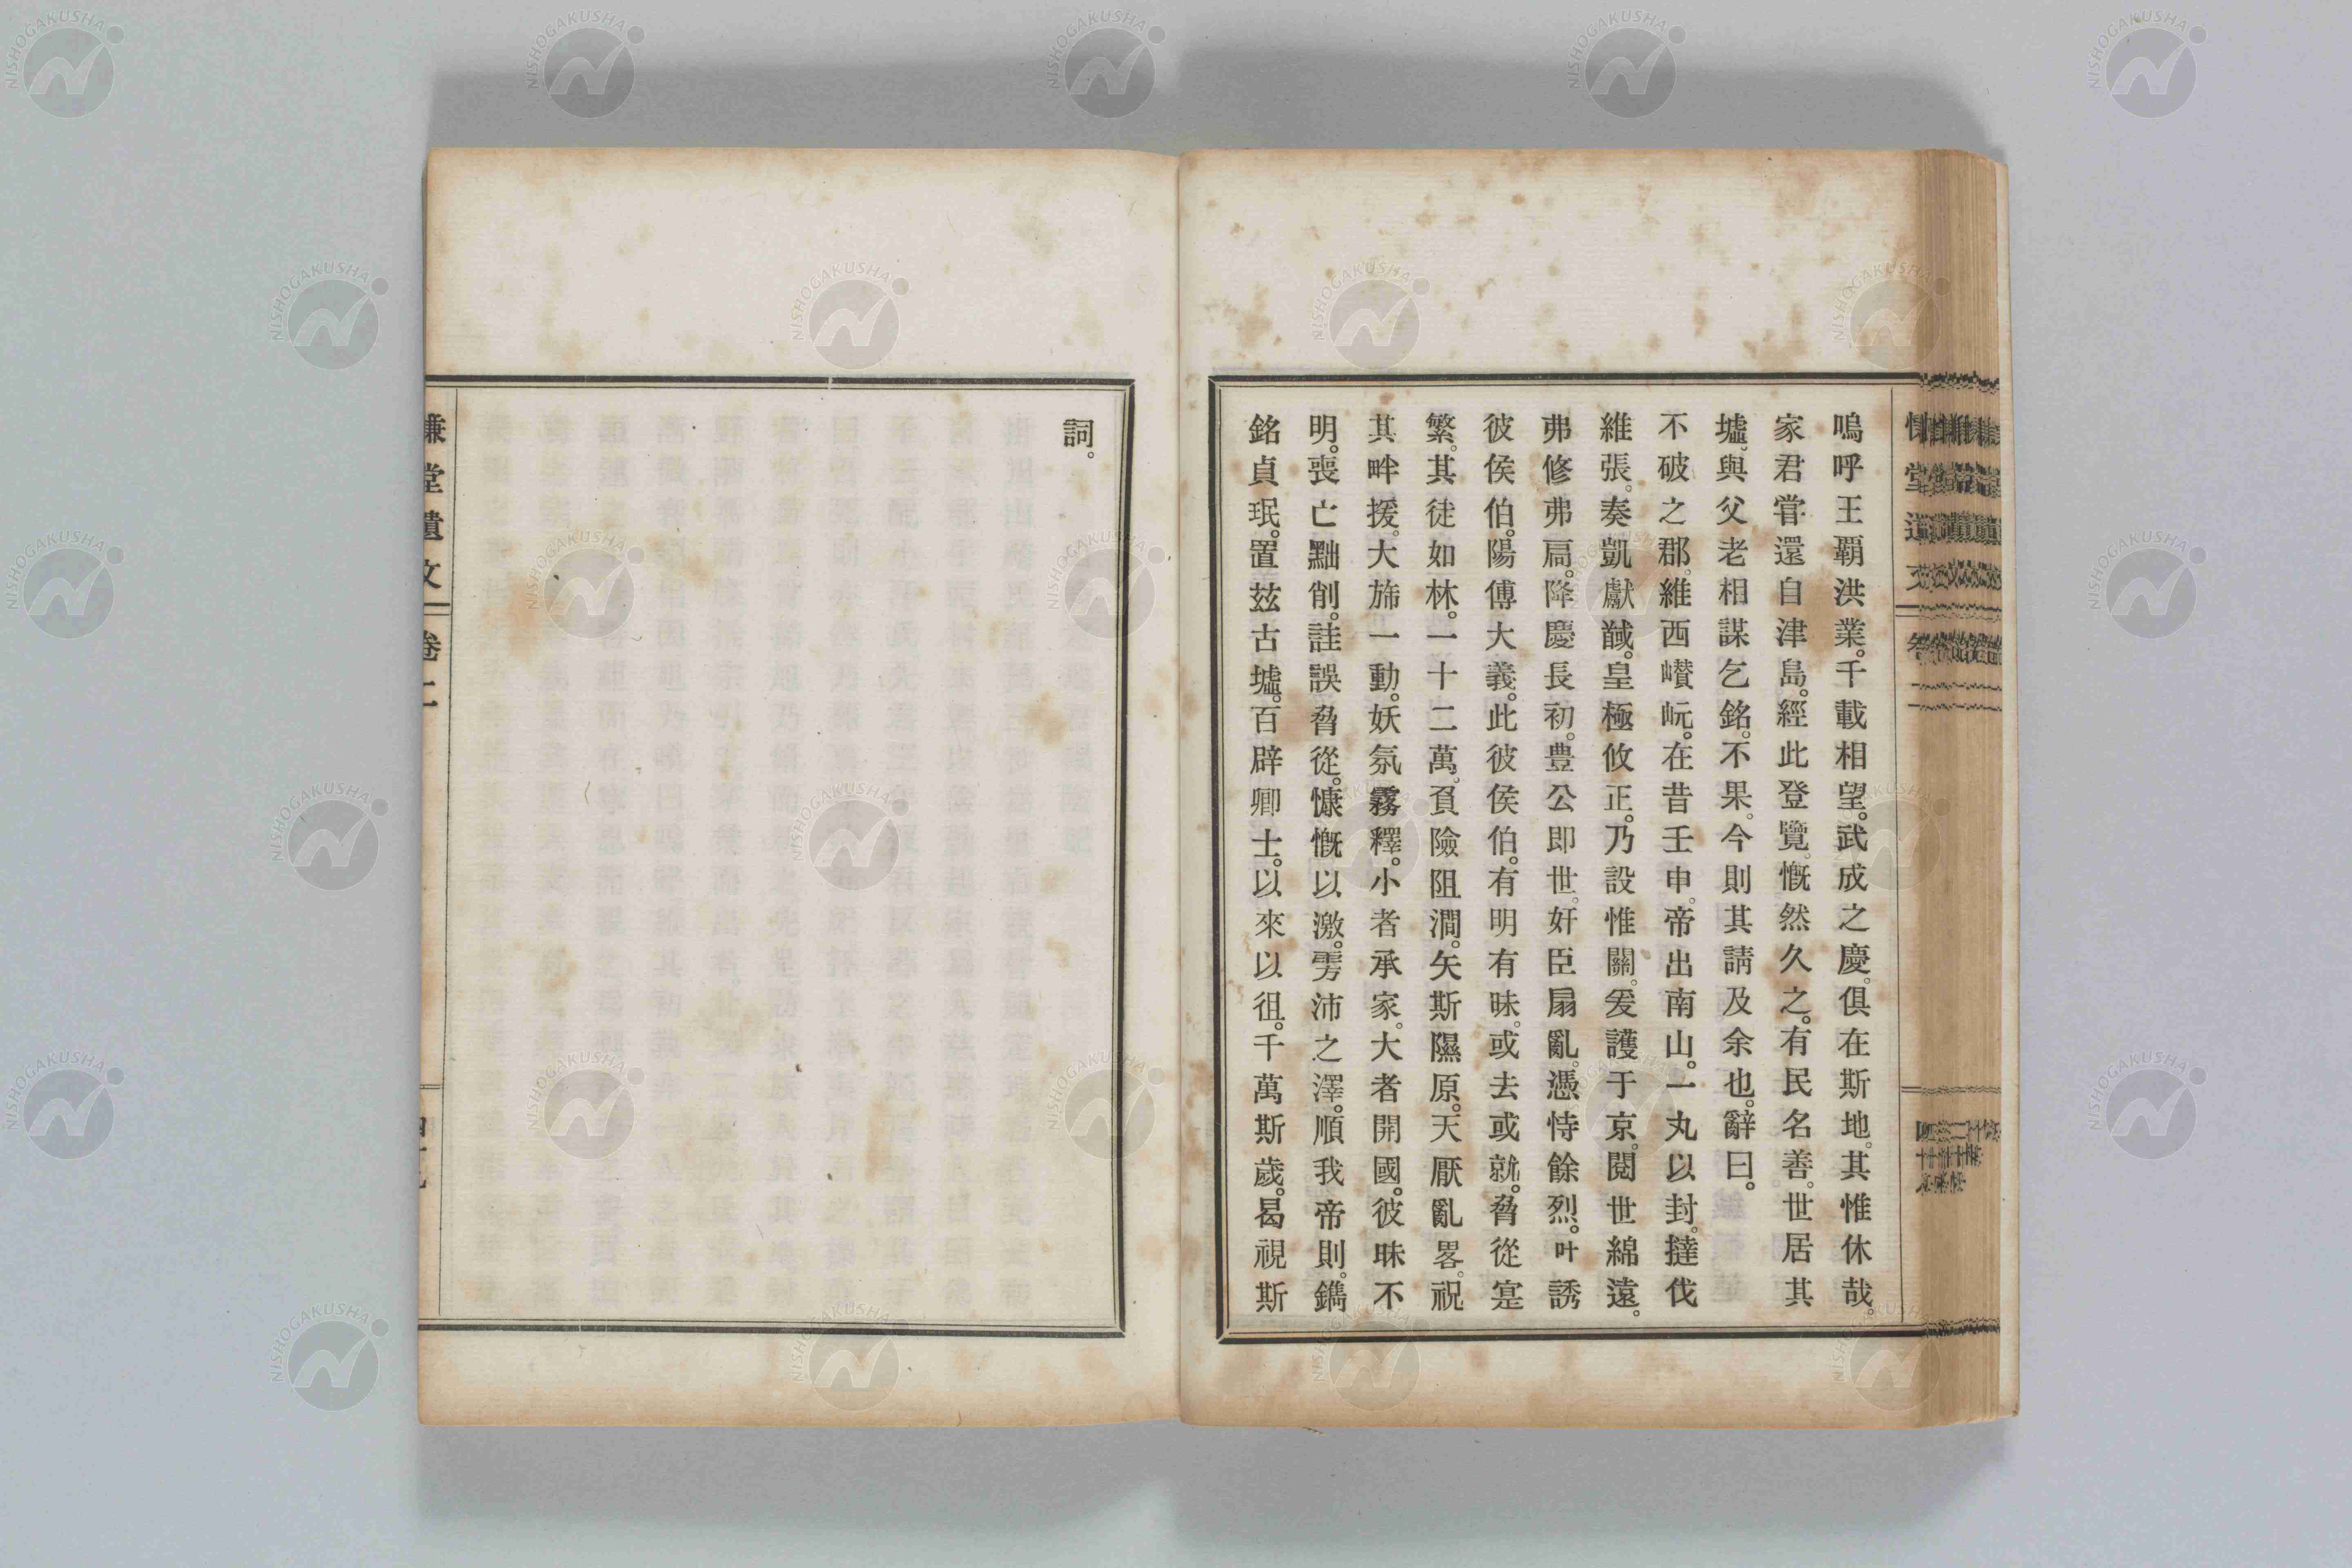 嗚呼王覇洪業。千載相望。武成之慶。俱在斯地。其惟休哉。
家君嘗還自津島。經此登覽。慨然久之。有民名善。世居其
墟。與父老相謀乞銘。不果。今則其請及余也。辭曰。
不破之郡。維西巑岏。在昔壬申。帝出南山。一丸以封。撻伐
維張。奏凱獻馘。皇極攸正。乃設惟關。爰護于京。閱世綿遠。
弗修弗扃。降慶長初。豊公即世。奸臣扇亂。憑恃餘烈。叶誘
彼侯伯。陽傅大義。此彼侯伯。有明有昧。或去或就。脅從寔
繁。其徒如林。一十二萬。負險阻澗。矢斯隰原。天厭亂畧。祝
其畔援。大旆一動。妖氛霧釋。小者承家。大者開國。彼昧不
明。喪亡黜削。詿誤脅從。慷慨以激。雱沛之澤。順我帝則。鐫
銘貞珉。置玆古墟。百辟卿士。以來以徂。千萬斯歲。曷視斯
詞。
慊堂遺文 卷二
NISHOGAKUSHA